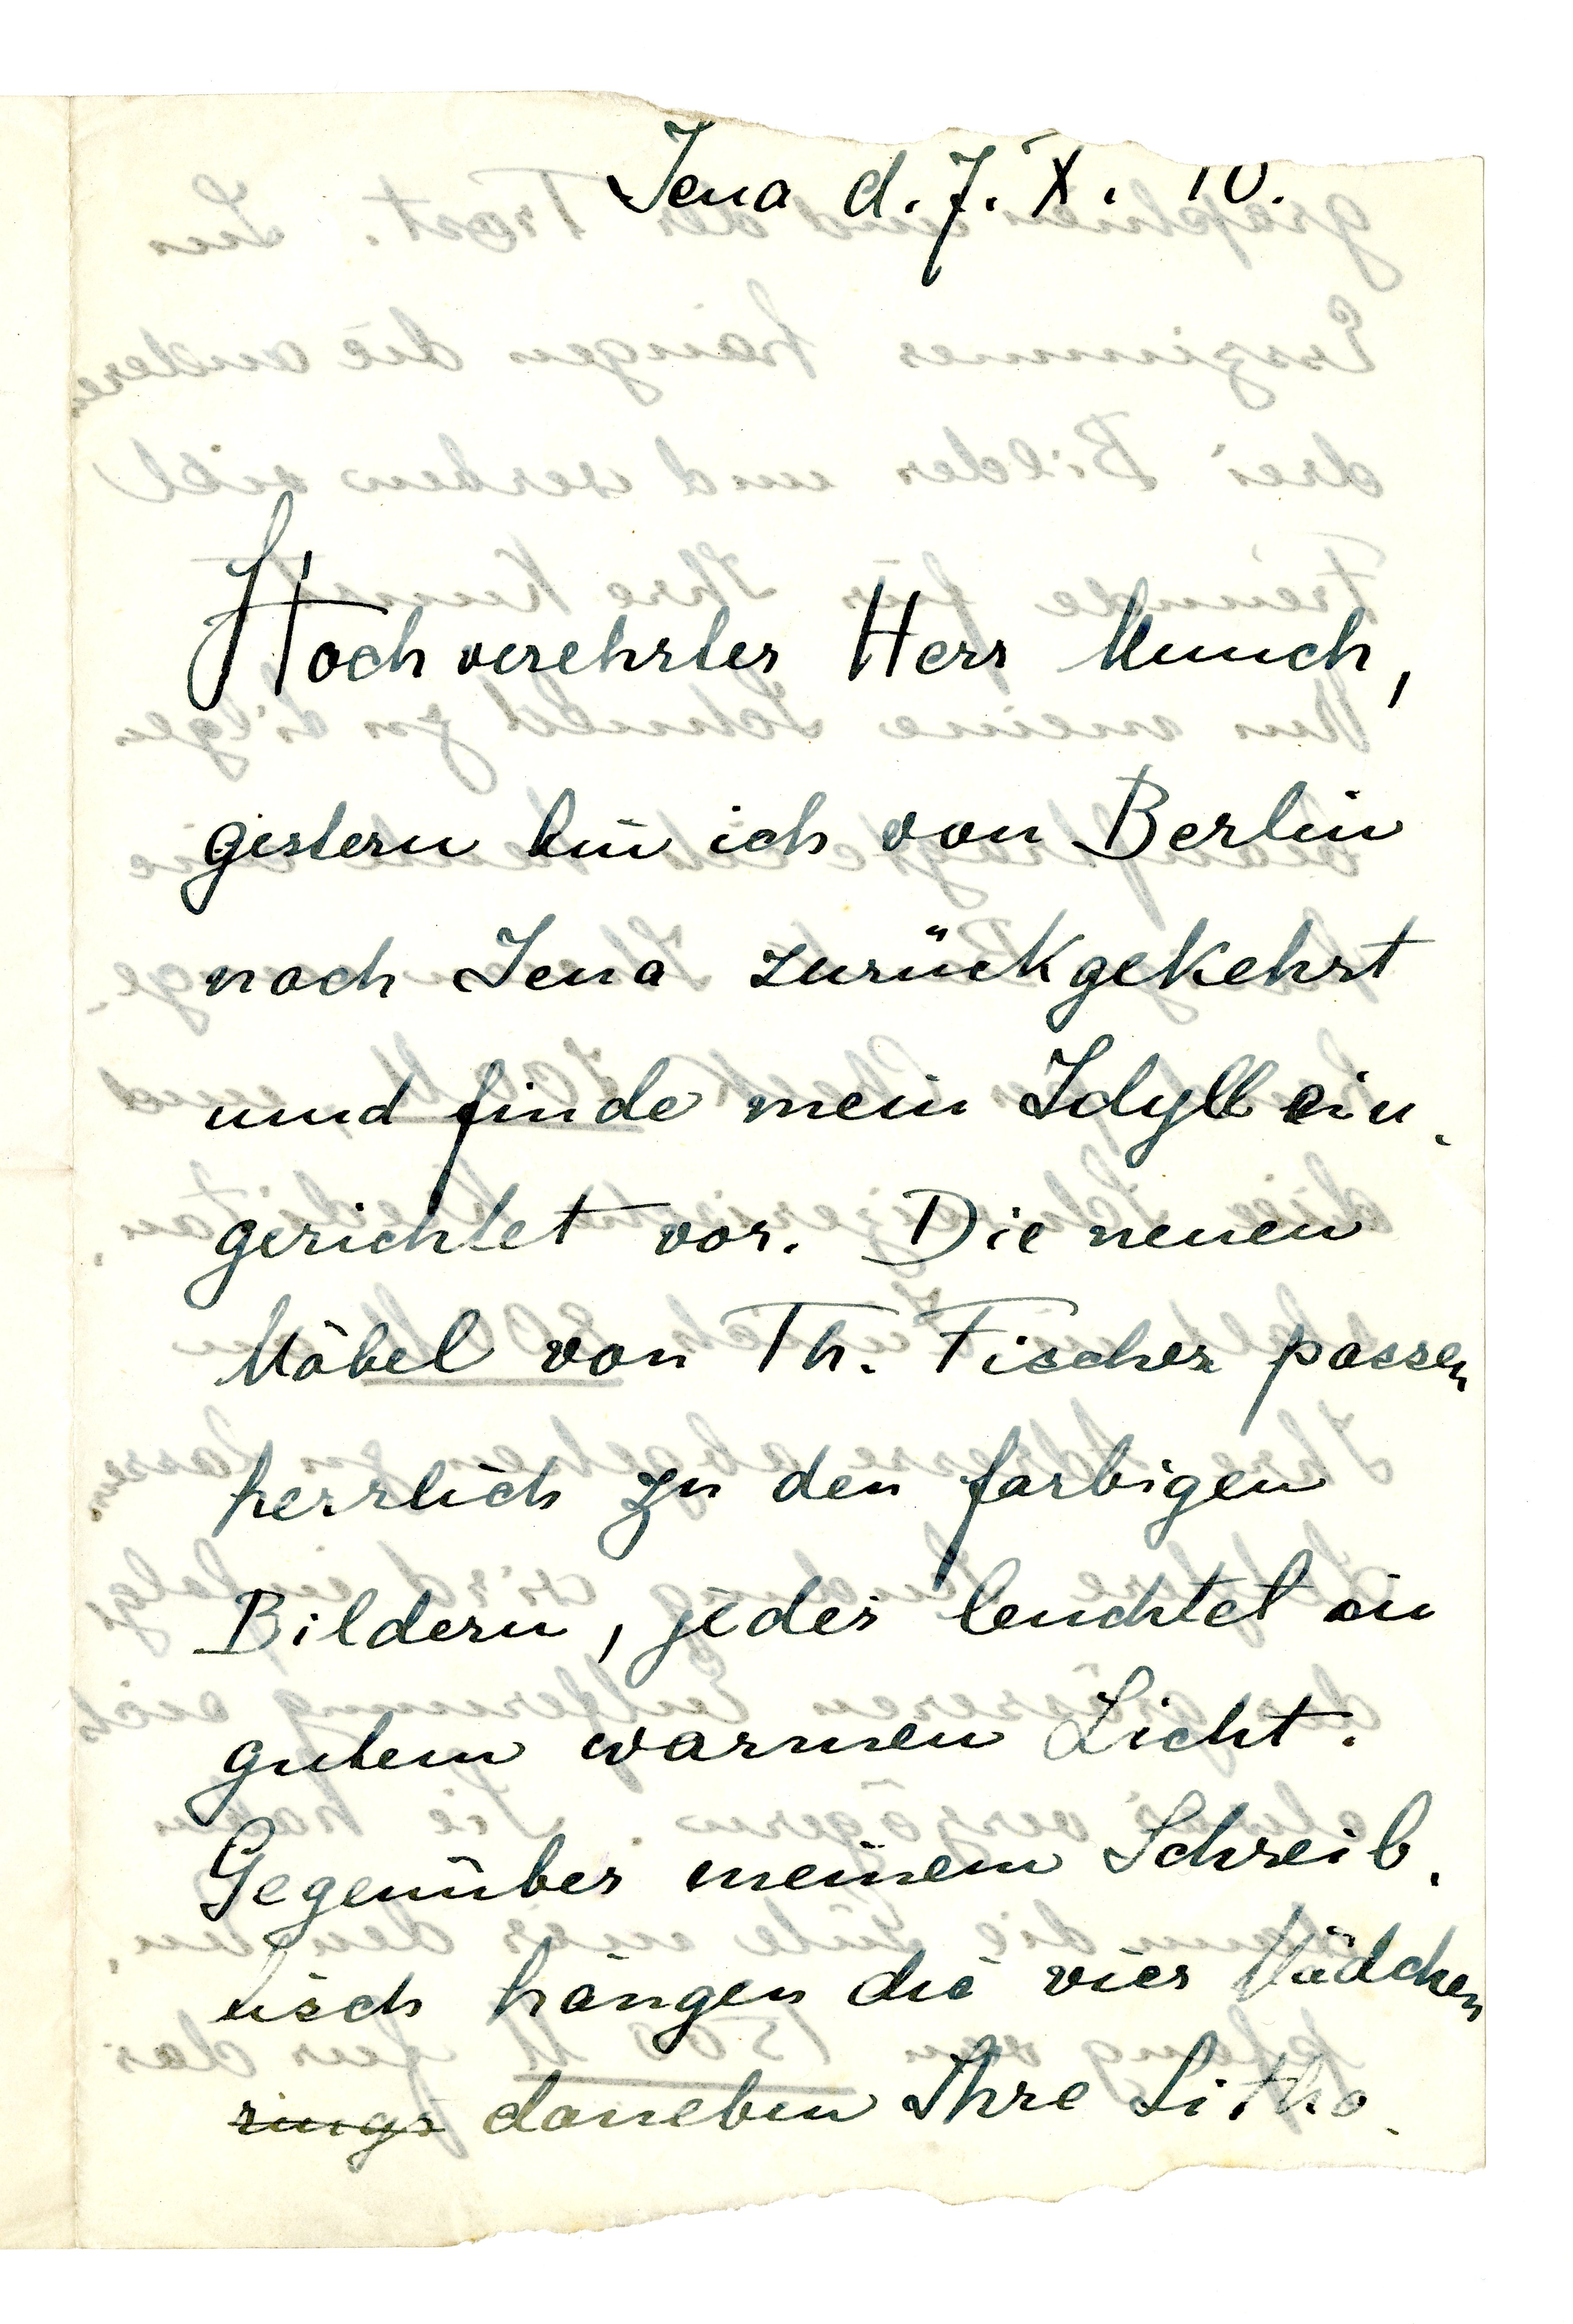 Jena d. 7. X. 10.
Hochverehrter Herr Munch,
gestern bin ich von Berlin
nach Jena zurückgekehrt
und finde mein Idyll ein-
gerichtet vor. Die neuen
Möbel von Th. Fischer passen
herrlich zu den farbigen
Bildern, jedes leuchtet in
gutem warmen Licht.
Gegenüber meinem Schreib-
tisch hängen die vier Mädchen
rings daneben Ihre Litho-